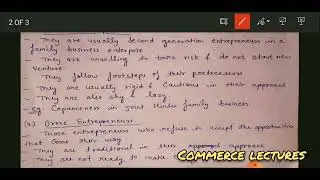 2 OF 3
- They are usually second generation entrepreneurs in a
family business enterprise
- They are unwilling to take risk & do not start new
venture
- They follow footsteps of their predecessors
- They are usually rigid & Cautious in their approach
- They are also shy & lazy
eg. in Joint Hindu family business
(4.) Drone Entrepreneurs
- Those entrepreneurs who refuse to accept the opportunities
that come their way
- They are traditional in their approach
- They are not ready to make
COMMERCE LECTURES